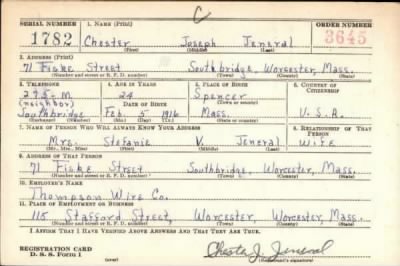 C
SERIAL NUMBER 1. NAME (Print) ORDER NUMBER
1782 Chester Joseph Jeneral 3645
(First) (Middle) (Last)
2. ADDRESS (Print)
71 Fiske Street Southbridge, Worcester, Mass.
(Number and street or R. F. D. number) (Town) (County) (State)
3. TELEPHONE 4. AGE IN YEARS 5. PLACE OF BIRTH 6. COUNTRY OF CITIZENSHIP
295-M 24 Spencer
(neighbor) DATE OF BIRTH (Town or county)
Southbridge Feb. 5 1916 Mass. U.S.A.
(Exchange) (Number) (Mo.) (Day) (Yr.) (State or country)
7. NAME OF PERSON WHO WILL ALWAYS KNOW YOUR ADDRESS 8. RELATIONSHIP OF THAT PERSON
Mrs. Stefanie V. Jeneral Wife
(Mr., Mrs., Miss) (First) (Middle) (Last)
9. ADDRESS OF THAT PERSON
71 Fiske Street Southbridge, Worcester, Mass.
(Number and street or R. F. D. number) (Town) (County) (State)
10. EMPLOYER'S NAME
Thompson Wire Co.
11. PLACE OF EMPLOYMENT OR BUSINESS
115 Stafford Street, Worcester, Worcester, Mass.
(Number and street or R. F. D. number) (Town) (County) (State)
I AFFIRM THAT I HAVE VERIFIED ABOVE ANSWERS AND THAT THEY ARE TRUE.
REGISTRATION CARD
D. S. S. Form 1 (over) Chester J. Jeneral
(Registrant's signature)